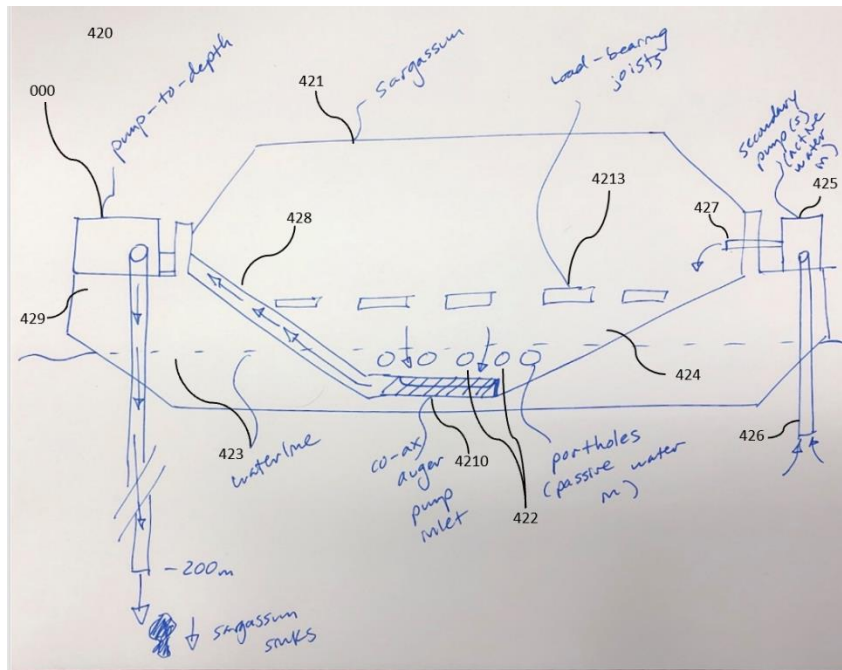 420
000
pump-to-depth
421
Sargassum
Load-bearing
joists
secondary
pump(s)
(active
water
in)
425
427
4213
428
429
424
423
waterline
co-ax
auger
pump
inlet
4210
422
portholes
(passive water
in)
426
-200m
sargassum
sinks